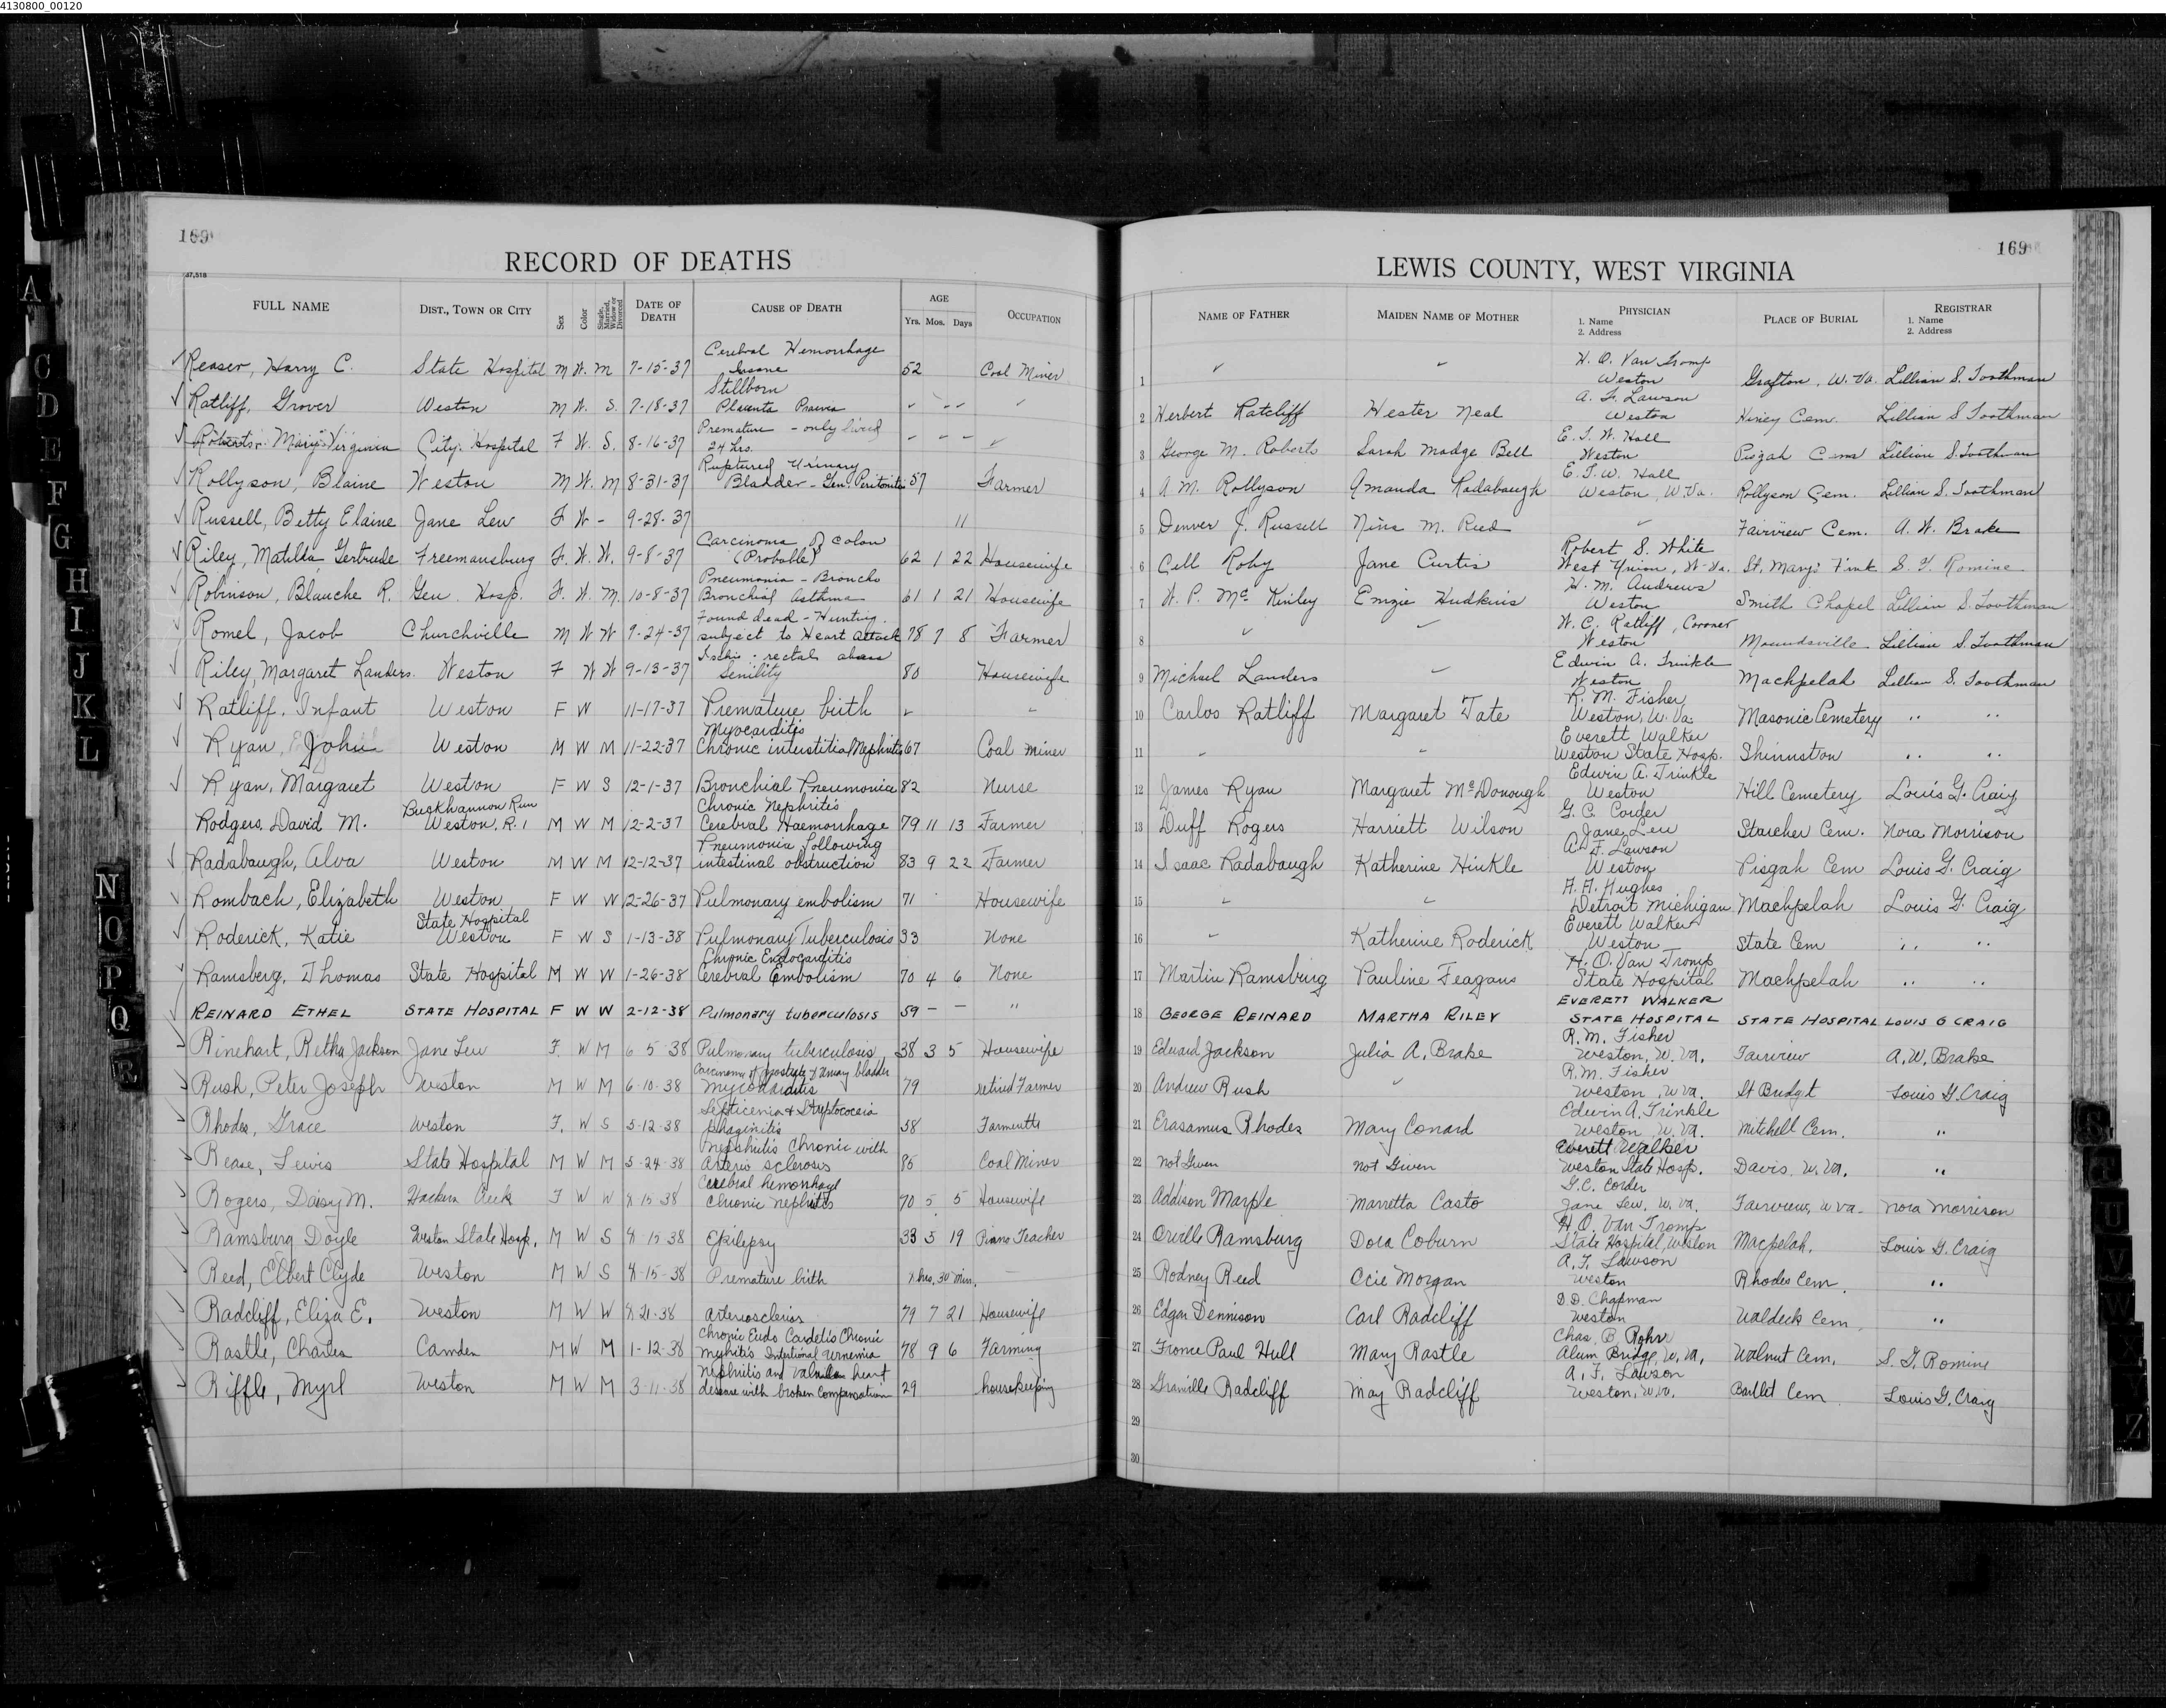 4130800_00120
169
RECORD OF DEATHS
47,518
FULL NAME DIST., TOWN OR CITY Sex Color Single, Married, Widow or Divorced DATE OF DEATH CAUSE OF DEATH AGE Yrs. Mos. Days OCCUPATION
Reaser, Harry C. State Hospital M W. M 7-15-37 Cerebral Hemorrhage Insane 52 Coal Miner
Ratliff, Grover Weston M W. S. 7-18-37 Stillborn Placenta Praevia
Roberts, Mary Virginia City Hospital F W. S. 8-16-37 Premature - only lived 24 hrs.
Rollyson, Blaine Weston M W. M 8-31-37 Ruptured Urinary Bladder - Gen. Peritonitis 57 Farmer
Russell, Betty Elaine Jane Lew F W - 9-28-37 11
Riley, Matilda Gertrude Freemansburg F. W. W. 9-8-37 Carcinoma of colon (Probable) 62 1 22 Housewife
Robinson, Blanche R. Gen. Hosp. F. W. M. 10-8-37 Pneumonia - Broncho Bronchial Asthma 61 1 21 Housewife
Romel, Jacob Churchville M W W 9-24-37 Found dead - Hunting. subject to Heart Attack 78 7 8 Farmer
Riley, Margaret Landers. Weston F W W 9-13-37 Ischio-rectal Senility 80 Housewife
Ratliff, Infant Weston F W 11-17-37 Premature birth
Ryan, John Weston M W M 11-22-37 Myocarditis Chronic interstitial Nephritis 67 Coal miner
Ryan, Margaret Weston F W S 12-1-37 Bronchial Pneumonia 82 Nurse
Rodgers, David M. Buckhannon Run Weston, R. 1 M W M 12-2-37 Chronic Nephritis Cerebral Haemorrhage 79 11 13 Farmer
Radabaugh, Alva Weston M W M 12-12-37 Pneumonia following intestinal obstruction 83 9 22 Farmer
Rombach, Elizabeth Weston F W W 12-26-37 Pulmonary embolism 71 Housewife
Roderick, Katie State Hospital Weston F W S 1-13-38 Pulmonary Tuberculosis 33 None
Ramsberg, Thomas State Hospital M W W 1-26-38 Chronic Endocarditis Cerebral Embolism 70 4 6 None
REINARD ETHEL STATE HOSPITAL F W W 2-12-38 Pulmonary tuberculosis 59 — — "
Rinehart, Retha Jackson Jane Lew F. W M 6 5 38 Pulmonary tuberculosis 38 3 5 Housewife
Rush, Peter Joseph Weston M W M 6-10-38 Carcinoma of prostate & urinary bladder Myocarditis 79 retired Farmer
Rhodes, Grace Weston F. W S 5-12-38 Septicemia & 58
Rease, Lewis State Hospital M W M 5-24-38 Nephritis Chronic with Arterio sclerosis 86 Coal Miner
Rogers, Daisy M. Hackers Creek F W W 8 15 38 Cerebral hemorrhage Chronic nephritis 70 5 5 Housewife
Ramsburg Doyle Weston State Hosp. M W S 8 15 38 Epilepsy 33 5 19 Piano Teacher
Reed, Elbert Clyde Weston M W S 8-15-38 Premature birth hrs. 30 min. —
Radcliff, Eliza E. Weston M W W 8 21-38 Arteriosclerios 79 7 21 Housewife
Rastle, Charles Camden M W M 1-12-38 Chronic Endo Cardetis Chronic 78 9 6 Farming
Riffle, Myrl Weston M W M 3-11-38 Nephritis and Valvular heart desease with broken compensation 29 housekeeping
169
LEWIS COUNTY, WEST VIRGINIA
NAME OF FATHER MAIDEN NAME OF MOTHER PHYSICIAN 1. Name 2. Address PLACE OF BURIAL REGISTRAR 1. Name 2. Address
1 H. O. Van Tromp Weston Grafton, W. Va. Lillian S. Toothman
2 Herbert Ratcliff Hester Neal A. F. Lawson Weston Hiney Cem. Lillian S Toothman
3 George M. Roberts Sarah Madge Bell E. T. W. Hall Weston Pisgah Cem Lillian S. Toothman
4 A. M. Rollyson Amanda Radabaugh E. T. W. Hall Weston, W.Va. Rollyson Cem. Lillian S. Toothman
5 Denver J. Russell Nina M. Reed Fairview Cem. A. W. Brake
6 Cell Roby Jane Curtis Robert S. White West Union, W. Va. St. Mary's Fink S. T. Romine
7 W. P. McKinley Emzie Hudkins H. M. Andrews Weston Smith Chapel Lillian S. Toothman
8 W. C. Ratliff, Coroner Weston Moundsville Lillian S. Toothman
9 Michael Landers Edwin A. Trinkle Weston Machpelah Lillian S. Toothman
10 Carlos Ratliff Margaret Tate R. M. Fisher Weston, W. Va. Masonic Cemetery " "
11 Everett Walker Weston State Hosp. Shinnston " "
12 James Ryan Margaret McDonough Edwin A. Trinkle Weston Hill Cemetery Louis G. Craig
13 Duff Rogers Harriett Wilson G. C. Corder Jane Lew Starcher Cem. Nora Morrison
14 Isaac Radabaugh Katherine Hinkle A. F. Lawson Weston Pisgah Cem Louis G. Craig
15 Hughes Detroit Michigan Machpelah Louis G. Craig
16 Katherine Roderick Everett Walker Weston State Cem " "
17 Martin Ramsburg Pauline Feagans H. O. Van Tromp State Hospital Machpelah " "
18 GEORGE REINARD MARTHA RILEY EVERETT WALKER STATE HOSPITAL STATE HOSPITAL LOUIS G CRAIG
19 Edward Jackson Julia A. Brake R. M. Fisher Weston, W. Va. Fairview A. W. Brake
20 Andrew Rush R. M. Fisher Weston, W Va. St Budgit Louis G. Craig
21 Erasamus Rhodes Mary Conard Edwin A. Trinkle Weston, W. Va. Mitchell Cem. "
22 not Given not Given Everett Walker Weston State Hosp. Davis, W. Va. "
23 Addison Marple Marretta Casto G. C. Corder Jane Lew, W. Va. Fairview, W Va. Nora Morrison
24 Orville Ramsburg Dora Coburn H. O. Van Tromp State Hospital, Weston Macpelah. Louis G. Craig
25 Rodney Reed Ocie Morgan A. F. Lawson Weston Rhodes Cem. "
26 Edgar Dennison Carl Radcliff D. D. Chapman Weston Waldeck Cem. "
27 Frome Paul Hull Mary Rastle Chas. B. Rohr Alum Bridge, W. Va. Walnut Cem. S. T. Romine
28 Granville Radcliff May Radcliff A. F. Lawson Weston, W. Va. Cem Louis G. Craig
29
30
A
C
D
E
F
G
H
I
J
K
L
N
O
P
Q
R
S
T
U
V
W
Z